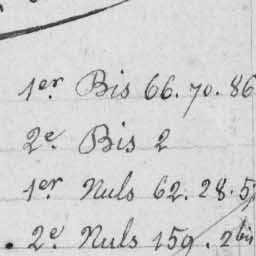 1er Bis 66.70.86
2e Bis 2
1er Nuls 62.28.5
2e Nuls 159.2bis